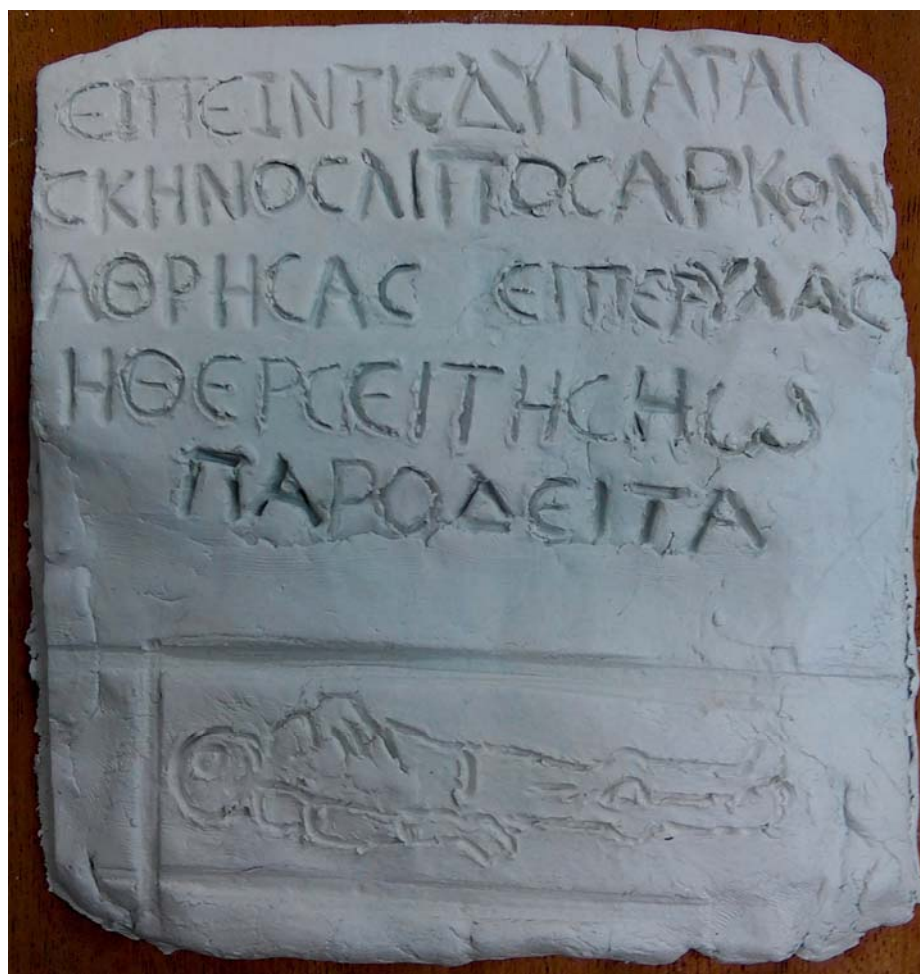 ΕΙΠΕΙΝΤΙϹΔΥΝΑΤΑΙ
ϹΚΗΝΟϹΛΙΠΟϹΑΡΚΟΝ
ΑΘΡΗϹΑϹ ΕΙΠΕΡΥΛΑϹ
ΗΘΕΡϹΕΙΤΗϹΗω
ΠΑΡΟΔΕΙΤΑ